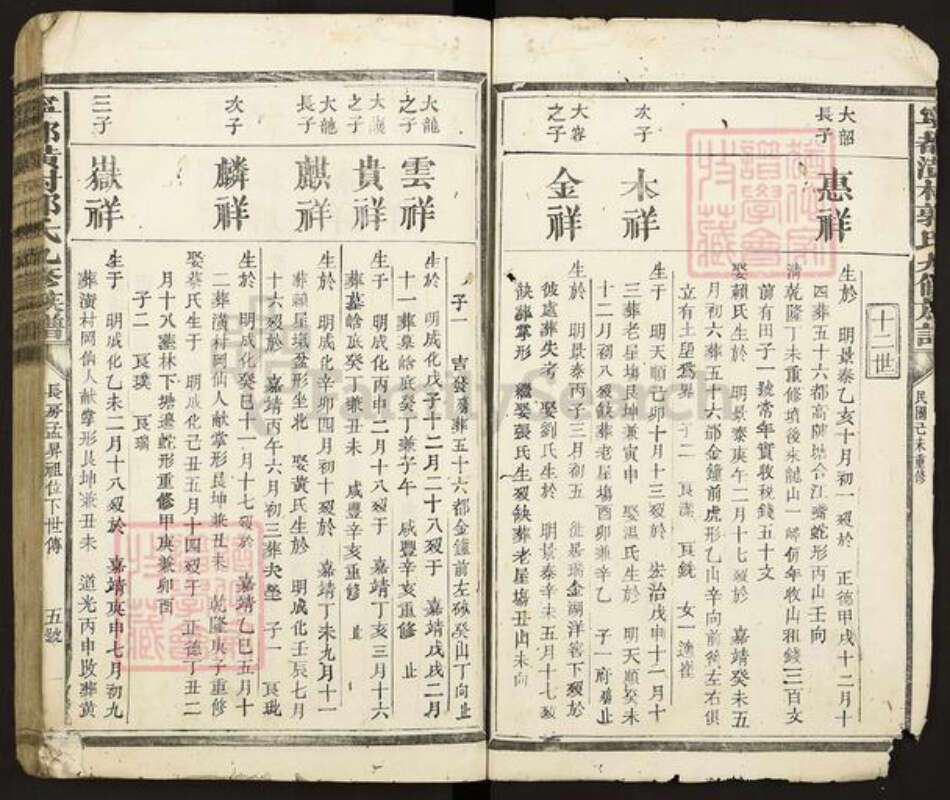 十二世
民國己未重修
大韶
長子
惠祥
生於 明景泰乙亥十月初一歿於 正德甲戌十二月十
四葬五十六都高 塘合江嘴蛇形丙山壬向
清乾隆丁未重修墳後來龍山一 每年收山租錢三百文
前有田子一號常年實收稅錢五十文
娶賴氏生於 明景泰庚午二月十七歿於 嘉靖癸未五
月初六葬五十六都金鐘前虎形乙山辛向前後左右俱
立有土 為界 子二 良 良銑 女一適崔
次子
木祥
生于 明天順己卯十月十三歿於 宏治戊申十二月十
三葬老屋塲艮坤兼寅申 娶溫氏生於 明天順癸未
十二月初八歿 葬老屋塲酉卯兼辛乙 子一府 止
大容
之子
金祥
生於 明景泰丙子三月初五 徙居瑞金湖洋窖下歿於
彼處葬失考 娶劉氏生於 明景泰辛未五月十七歿
缺葬掌形 繼娶張氏生歿缺葬老屋塲丑山未向
大龍
之子
雲祥
子一 吉發 葬五十六都金鐘前左 癸山丁向止
生於 明成化戊子十二月二十八歿于 嘉靖戊戌二月
十一葬墓皓底癸丁兼子午 咸豐辛亥重修 止
之子
貴祥
生于 明成化丙申二月十八歿于 嘉靖丁亥三月十六
葬墓皓底癸丁兼丑未 咸豐辛亥重修 止
長子
麒祥
生於 明成化辛卯四月初十歿於 嘉靖丁未九月十一
葬嶺屋壩盆形坐北 娶黃氏生於 明成化壬辰七月
十六歿於 嘉靖丙午六月初三葬夫塋 子一 良玭
次子
麟祥
生於 明成化癸巳十一月十七歿於 嘉靖乙巳五月十
二葬潢村岡仙人献掌形艮坤兼丑未 乾隆庚子重修
娶蔡氏生于 明成化己丑五月十四歿于 正德丁丑二
月十八 林下塘邊蛇形重修甲庚兼卯酉
子二 良璞 良瑞
三子
嶽祥
生于 明成化乙未二月十八歿於 嘉靖庚申七月初九
葬潢村岡仙人献掌形艮坤兼丑未 道光丙申改葬黃
長房孟昇祖位下世傳 五號